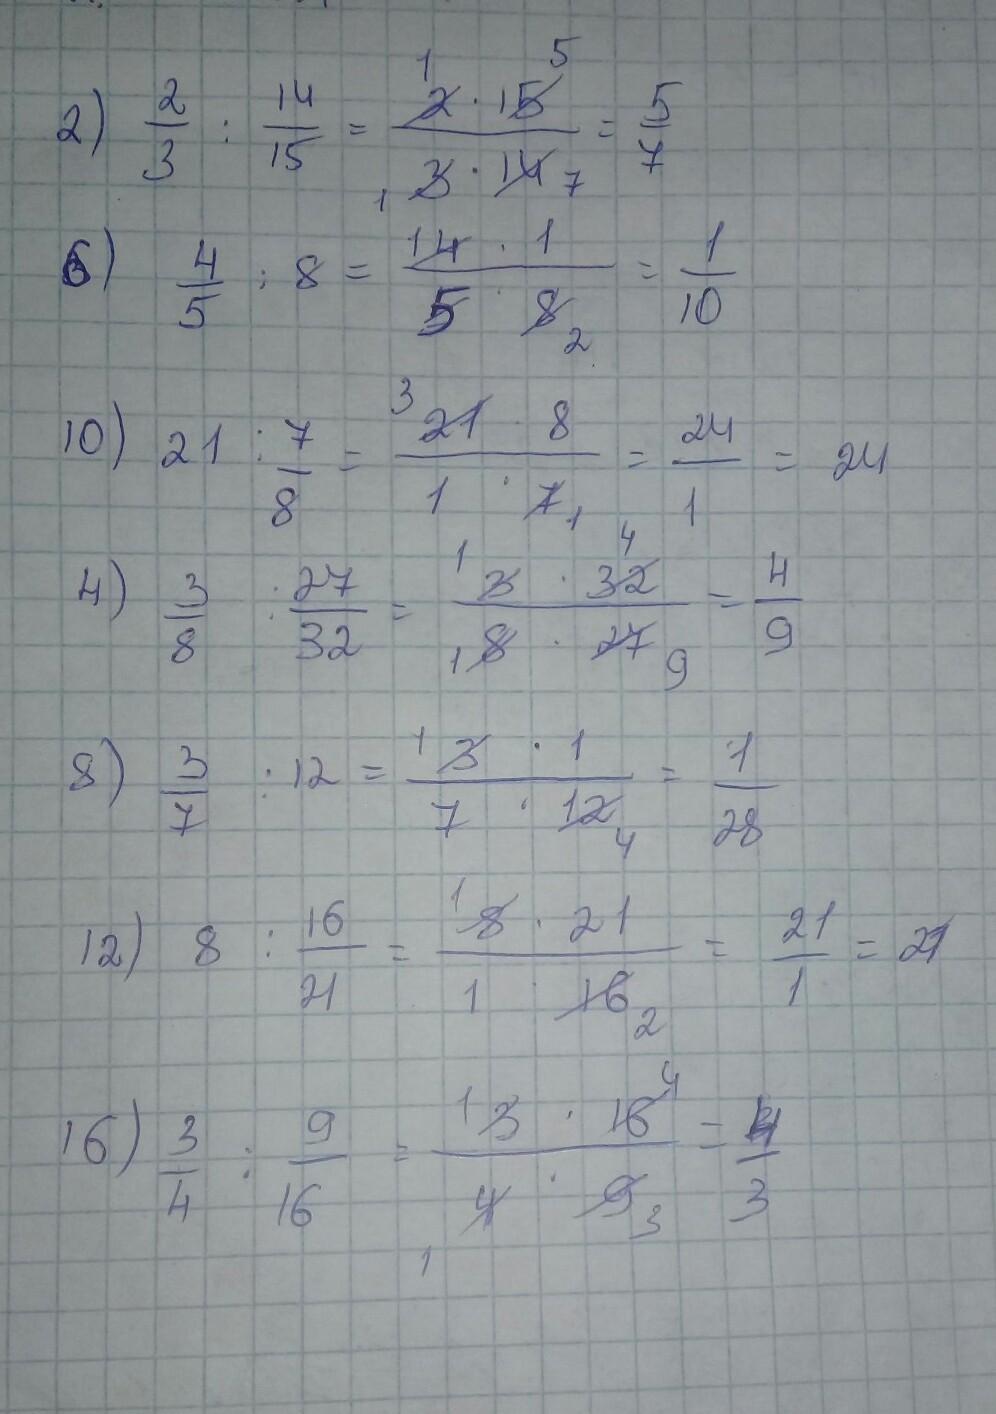 2) 2/3 : 14/15 = (2 · 15)/(3 · 14) = 5/7
6) 4/5 : 8 = (4 · 1)/(5 · 8) = 1/10
10) 21 : 7/8 = (21 · 8)/(1 · 7) = 24/1 = 24
4) 3/8 : 27/32 = (3 · 32)/(8 · 27) = 4/9
8) 3/7 : 12 = (3 · 1)/(7 · 12) = 1/28
12) 8 : 16/21 = (8 · 21)/(1 · 16) = 21/1 = 21
16) 3/4 : 9/16 = (3 · 16)/(4 · 9) = 4/3